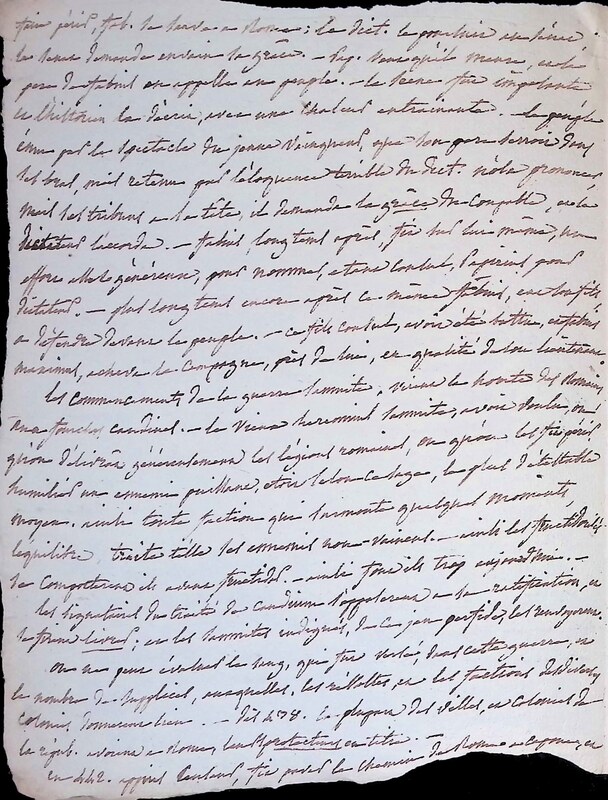 faire périr, fab. se sauve a Rome; le dict. le poursuit au sénat
le sénat demande envain sa grâce. — Pap. veut qu'il meure, et le
père de fabius en appelle au peuple. — la scène fut imposante
et l'historien la décrit, avec une chaleur entrainante. — le peuple
ému par le spectacle du jeune vainqueur, que son père serroit dans
ses bras, mais retenu par l'éloquence terrible du dict. n'ose prononcer,
mais les tribuns a sa tête, il demande la grâce du coupable, et le
dictateur l'accorde. — fabius, longtems après, fit sur lui-même, un
effort assez généreux, pour nommer, etant consul, Papirius pour
dictateur. — plus longtems encore après ce même fabius, eut son fils
a défendre devant le peuple. — ce fils consul, avoit été battu, et fabius
maximus, acheva la campagne, près de lui, en qualité de son lieutenant
les commencements de la guerre samnite, virent la honte des Romains
aux fourches caudines. — le vieux herennius samnite, avoit voulu, ou
qu'on délivrât généreusement les légions romaines, ou qu'on les fit périr,
humilier un ennemi puissant, étoit selon ce sage, le plus détestable
moyen. ainsi toute faction qui surmonte quelques moments
l'équilibre, traite telle ses ennemis non-vaincus. — ainsi les fructidorisés
se comportèrent ils avant fructidor. — ainsi font ils trop aujourd'hui. —
les signataires du traité de Caudium s'opposèrent a sa ratification, et
se firent livrer; et les samnites indignés, de ce jeu perfide, les renvoyèrent.
on ne peut évaluer le sang, qui fut versé, dans cette guerre, et
le nombre de supplices, auxquelles, les révoltes, et les factions des diverses
colonies donnèrent lieu. — dès 438. la plupart des villes, et colonies de
la répub. avoient a Rome, leurs protecteurs en titre.
en 442. appius Claudius, fit paver le chemin de Rome a Capoue, et